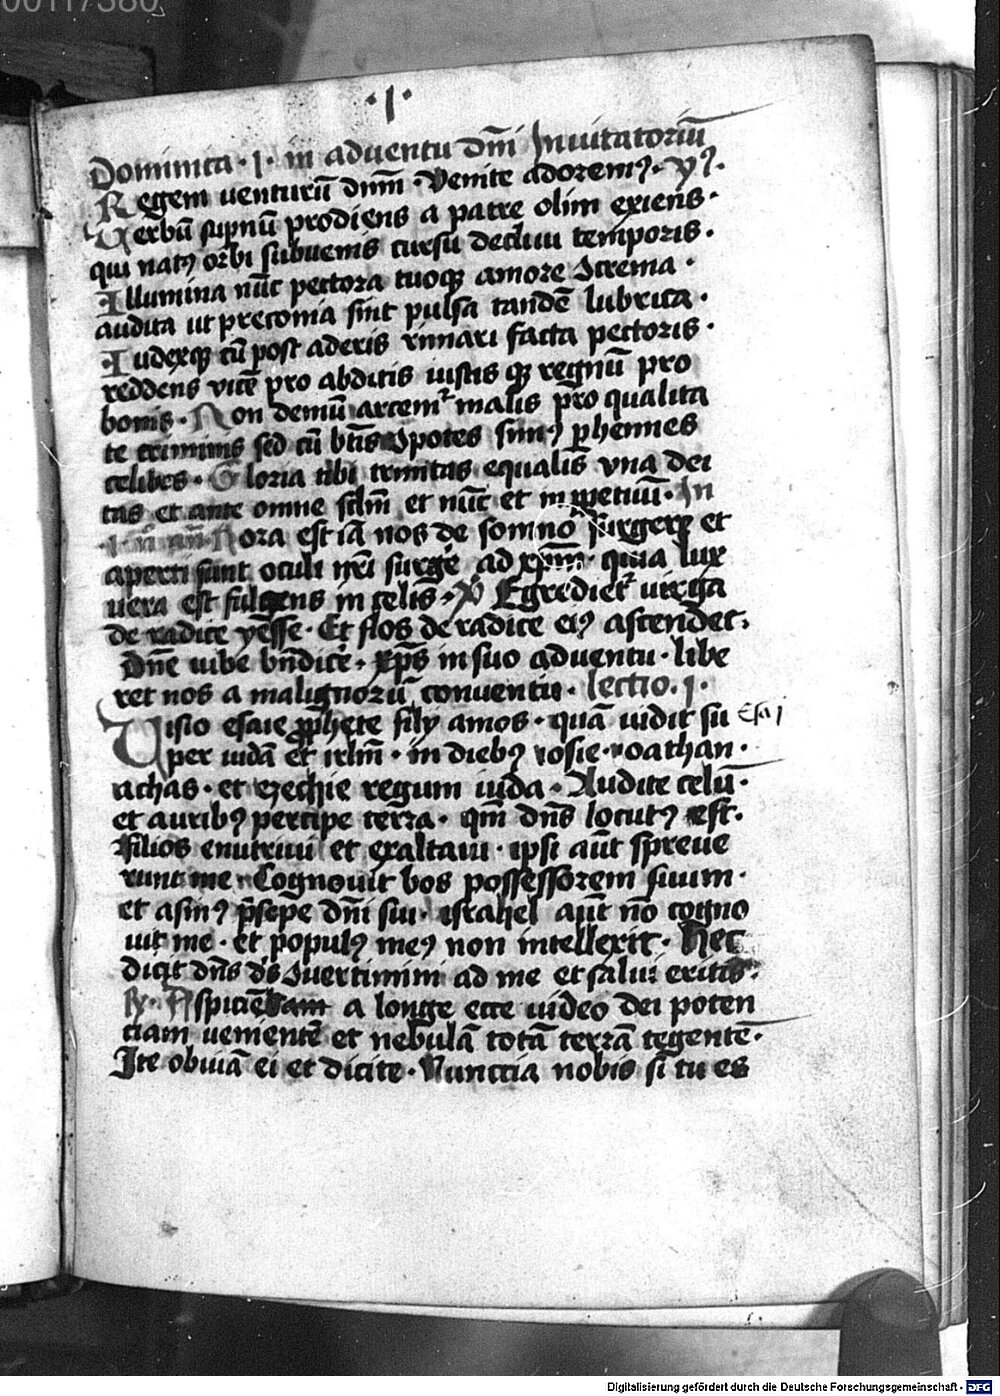 00117380
·I·
Dominica · I · in adventu dm̄i Inuitatoriū
Regem venturū dnm̄ · Venite adoremꝰ · yꝰ ·
Uerbū supnū prodiens a patre olim exiens ·
qui natꝰ orbi subuenis cursu decliui temporis ·
Illumina nūc pectora tuoqꝫ amore Icrema ·
audita ut preconia sint pulsa tandē lubrica ·
Iudexqꝫ cū post aderis rimari facta pectoris ·
reddens vicē pro abditis iustis qꝫ regnū pro
bonis · Non demū artemᷣ malis pro qualita
te criminis sed cū btīs 9potes simꝰ phennes
celibes · Gloria tibi trinitas equalis una dei
tas et ante omne sclm̄ et nūc et in ppetuū · In
Hora est iā nos de somno surgere et
aperti sunt oculi nrī surge ad xpm̄ · quia lux
vera est fulgens in celis · V Egredietᷣ virga
de radice yesse · Et flos de radice eiꝰ ascendet ·
Dn̄e iube bn̄dicē · xp̄s in suo adventu · libe
ret nos a malignorū conventu · lectio · I ·
Uisio esaie ꝓphete filij amos · quā uidit su
Esa 1
per iudā et irlm̄ · in diebꝰ iosie · ioathan ·
achas · et ezechie regum iuda · Audite celū ·
et auribꝰ percipe terra · qm̄ dn̄s locutꝰ est ·
filios enutriui et exaltaui · ipsi aūt spreue
runt me · Cognouit bos possessorem suum ·
et asinꝰ p̄sepe dn̄i sui · israhel aūt nō cogno
uit me · et populꝰ meꝰ non intellexit · Hec
dicit dn̄s ds̄ 9uertimini ad me et salui eritis ·
℟ · Aspiciēbam a longe ecce uideo dei poten
ciam uenientē et nebulā totā terrā tegentē ·
Ite obuiā ei et dicite · Nunccia nobis si tu es
Digitalisierung gefördert durch die Deutsche Forschungsgemeinschaft - DFG